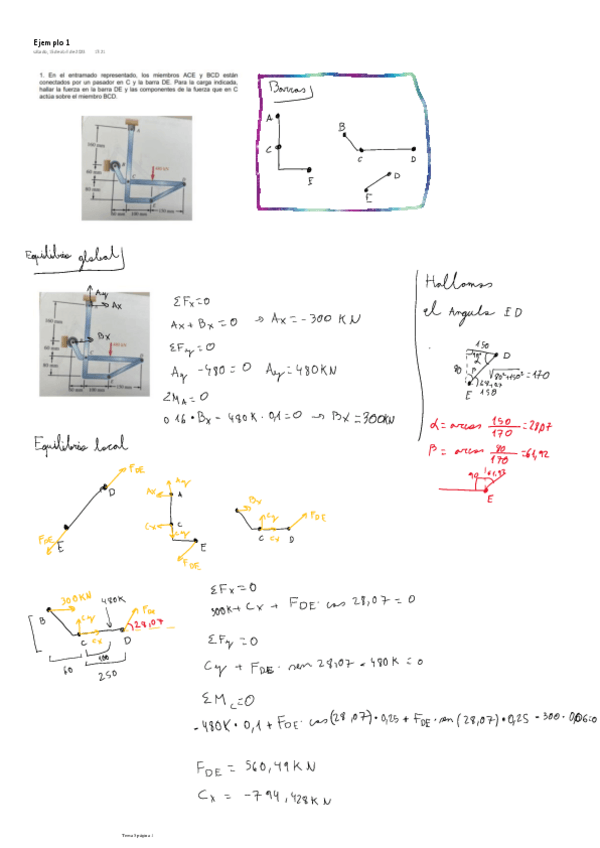 Ejemplo 1
1. En el entramado representado, los miembros ACE y BCD están
conectados por un pasador en C y la barra DE. Para la carga indicada,
hallar la fuerza en la barra DE y las componentes de la fuerza que en C
actúa sobre el miembro BCD.
Barras
A
C
E
B
C
D
D
E
160 mm
60 mm
80 mm
480 kN
100 mm
150 mm
Equilibrio global
Ay
Ax
Bx
160 mm
60 mm
80 mm
480 kN
100 mm
150 mm
ΣFx=0
Ax + Bx = 0 → Ax = -300 KN
ΣFy=0
Ay -480 = 0 Ay = 480KN
ΣMA=0
0.16 · Bx - 480K · 0,1 = 0 → Bx = 300KN
Hallamos
el Angulo ED
150
D
α
80
β
√80²+150² = 170
E
150
α = arcos 150/170 = 28,07
β = arcos 80/170 = 61,92
90
E
Equilibrio local
FDE
D
FDE
E
Ay
Ax
A
Cx
C
Cy
E
FDE
Bx
Cy
C
Cx
D
FDE
300KN
B
480K
Cy
FDE
28,07
C
Cx
D
60
100
250
ΣFx=0
300K + Cx + FDE · cos 28,07 = 0
ΣFy=0
Cy + FDE · sen 28,07 - 480K = 0
ΣMC=0
- 480K · 0,1 + FDE · cos(28,07) · 0,25 + FDE · sen(28,07) · 0,25 - 300 · 0,06=0
FDE = 560,49KN
Cx = -794,428KN
Tema 5 página 1